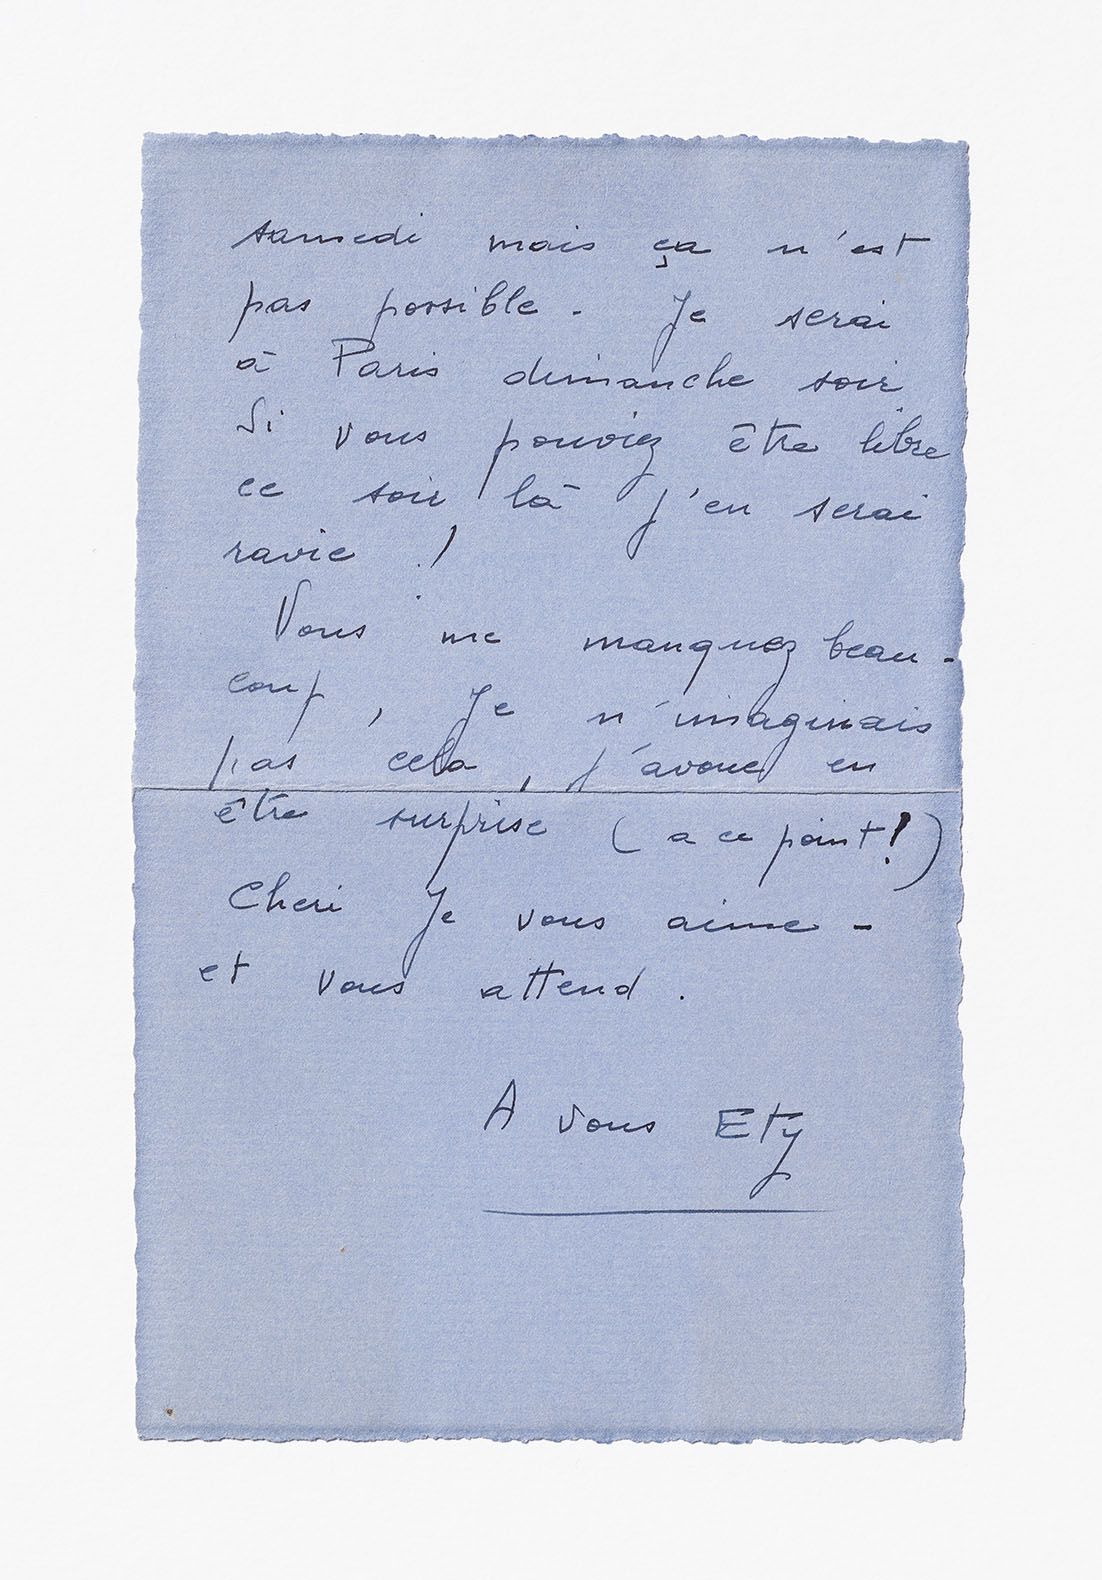 samedi mais ça n'est
pas possible - Je serai
à Paris dimanche soir
Si vous pouviez être libre
ce soir là j'en serai
ravie !
Vous me manquez beau-
coup, Je n'imaginais
pas cela, j'avoue en
être surprise (a ce point!)
Cheri Je vous aime -
et vous attend.
A vous Ety